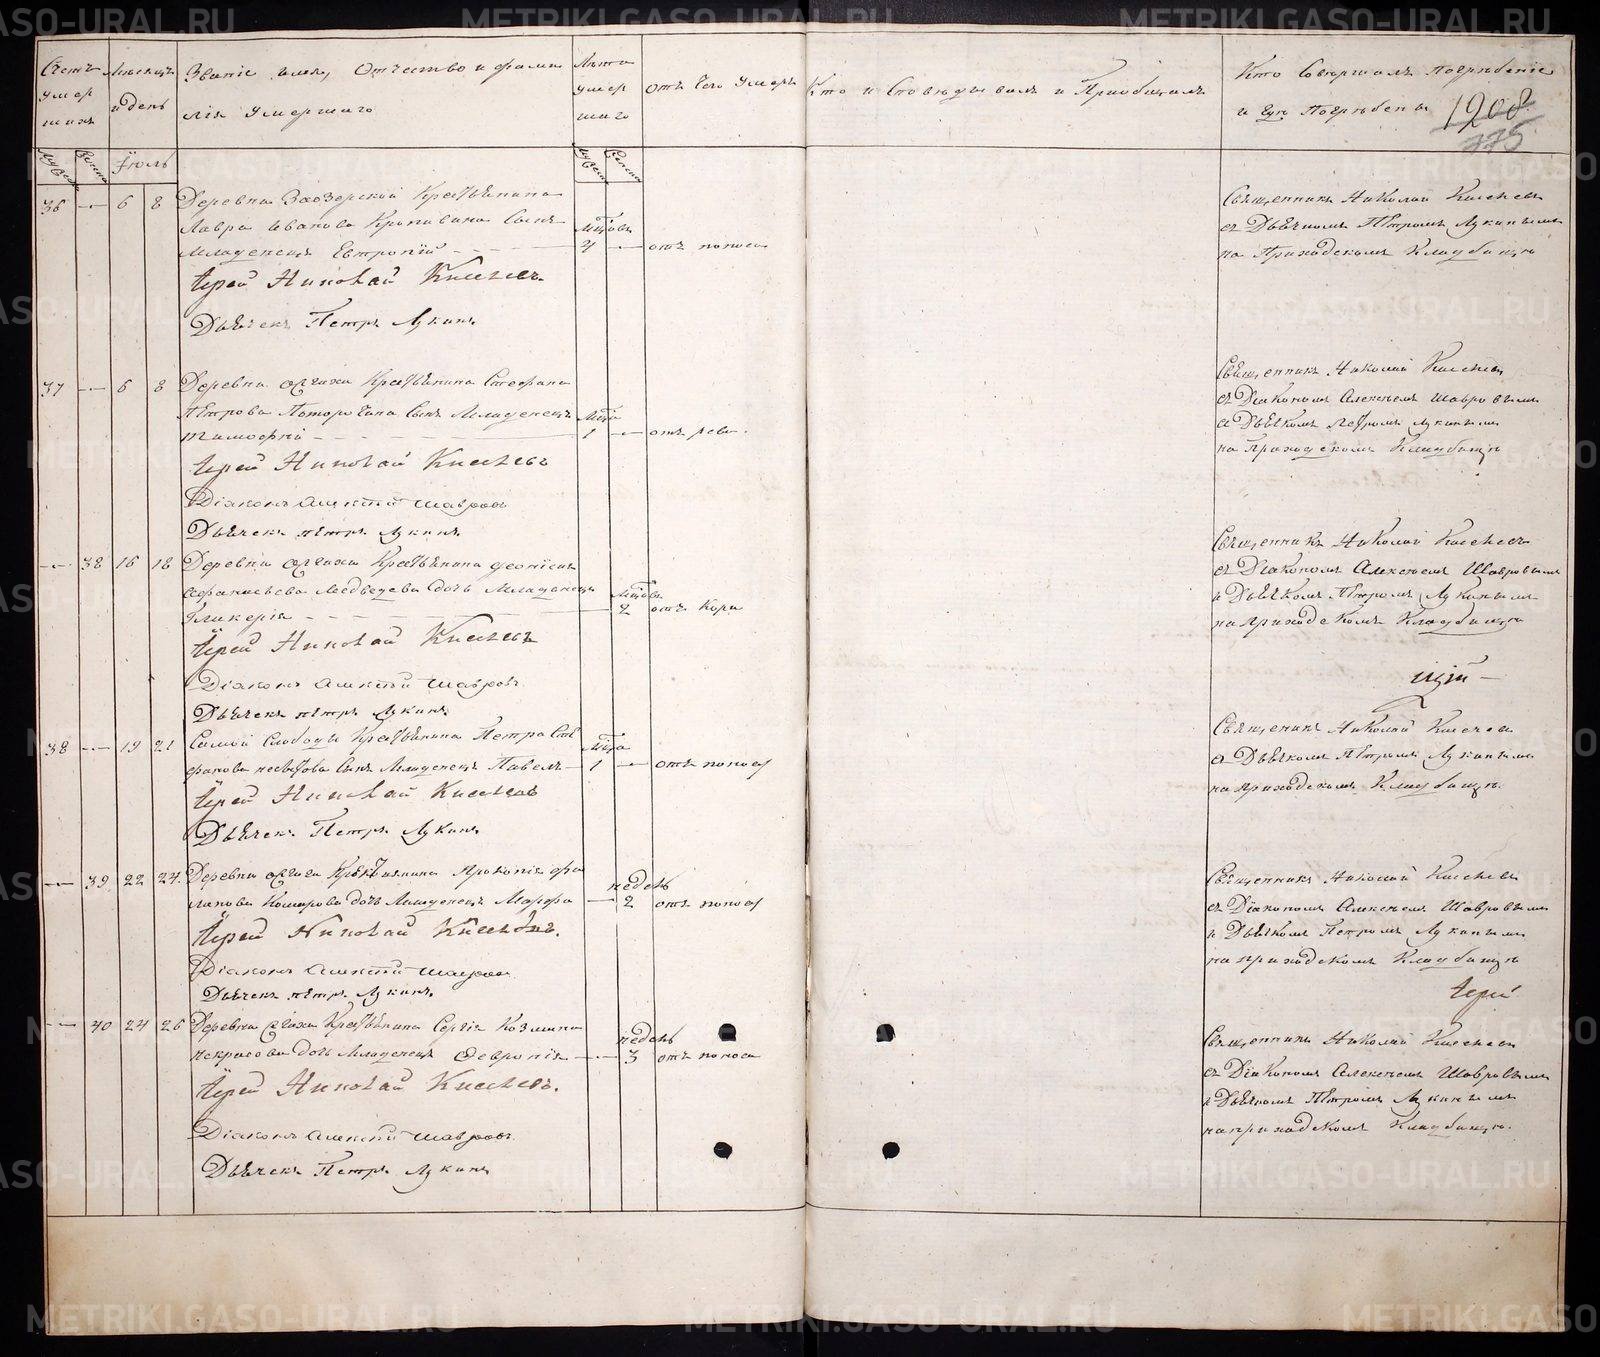 METRIKI.GASO-URAL.RU
Счетъ умершихъ
Мѣсяцъ и день
Званіе, имя, Отчество и фамилія Умершаго
Лѣта умершаго
отъ чего умеръ
Кто исповѣдывалъ и Пріобщалъ
Кто Совершалъ погребеніе и гдѣ Погребены
1208
775
Іюль
36 — 6 8 Деревни Заозерской Крестьянина
Лавра Иванова Кропивина Сынъ
Младенецъ Евтропій
4 — отъ поноса
Іерей Николай Киселевъ
Дьячекъ Петръ Лукинъ
Священникъ Николай Киселевъ
съ Дьячкомъ Петромъ Лукинымъ
на Приходскомъ Кладбищѣ
37 — 6 8 Крестьянина Стефана
Петрова Сынъ Младенецъ
Тимофей
1 — отъ рева
Іерей Николай Киселевъ
Діаконъ Алексѣй Шавровъ
Дьячекъ Петръ Лукинъ
Священникъ Николай Киселевъ
съ Діакономъ Алексѣемъ Шавровымъ
и Дьячкомъ Петромъ Лукинымъ
на Приходскомъ Кладбищѣ
— 38 16 18 Деревни Крестьянина
Медведева дочь Младенецъ
Гликерія
2 отъ Кори
Іерей Николай Киселевъ
Діаконъ Алексѣй Шавровъ
Дьячекъ Петръ Лукинъ
Священникъ Николай Киселевъ
съ Діакономъ Алексѣемъ Шавровымъ
и Дьячкомъ Петромъ Лукинымъ
на Приходскомъ Кладбищѣ
38 — 19 21 Самой Слободы Крестьянина Петра Сте
фанова Сынъ Младенецъ Павелъ
1 — отъ поноса
Іерей Николай Киселевъ
Дьячекъ Петръ Лукинъ
Священникъ Николай Киселевъ
съ Дьячкомъ Петромъ Лукинымъ
на приходскомъ Кладбищѣ
— 39 22 24 Деревни Крестьянина Прокопія
Комарова дочь Младенецъ Марфа
недель 2 отъ поноса
Іерей Николай Киселевъ
Діаконъ Алексѣй Шавровъ
Дьячекъ Петръ Лукинъ
Священникъ Николай Киселевъ
съ Діакономъ Алексѣемъ Шавровымъ
и Дьячкомъ Петромъ Лукинымъ
на приходскомъ Кладбищѣ
Іерей
— 40 24 26 Деревни Крестьянина Сергія Козмина
Некрасова дочь Младенецъ Февронія
недель 3 отъ поноса
Іерей Николай Киселевъ
Діаконъ Алексѣй Шавровъ
Дьячекъ Петръ Лукинъ
Священникъ Николай Киселевъ
съ Діакономъ Алексѣемъ Шавровымъ
и Дьячкомъ Петромъ Лукинымъ
на приходскомъ Кладбищѣ